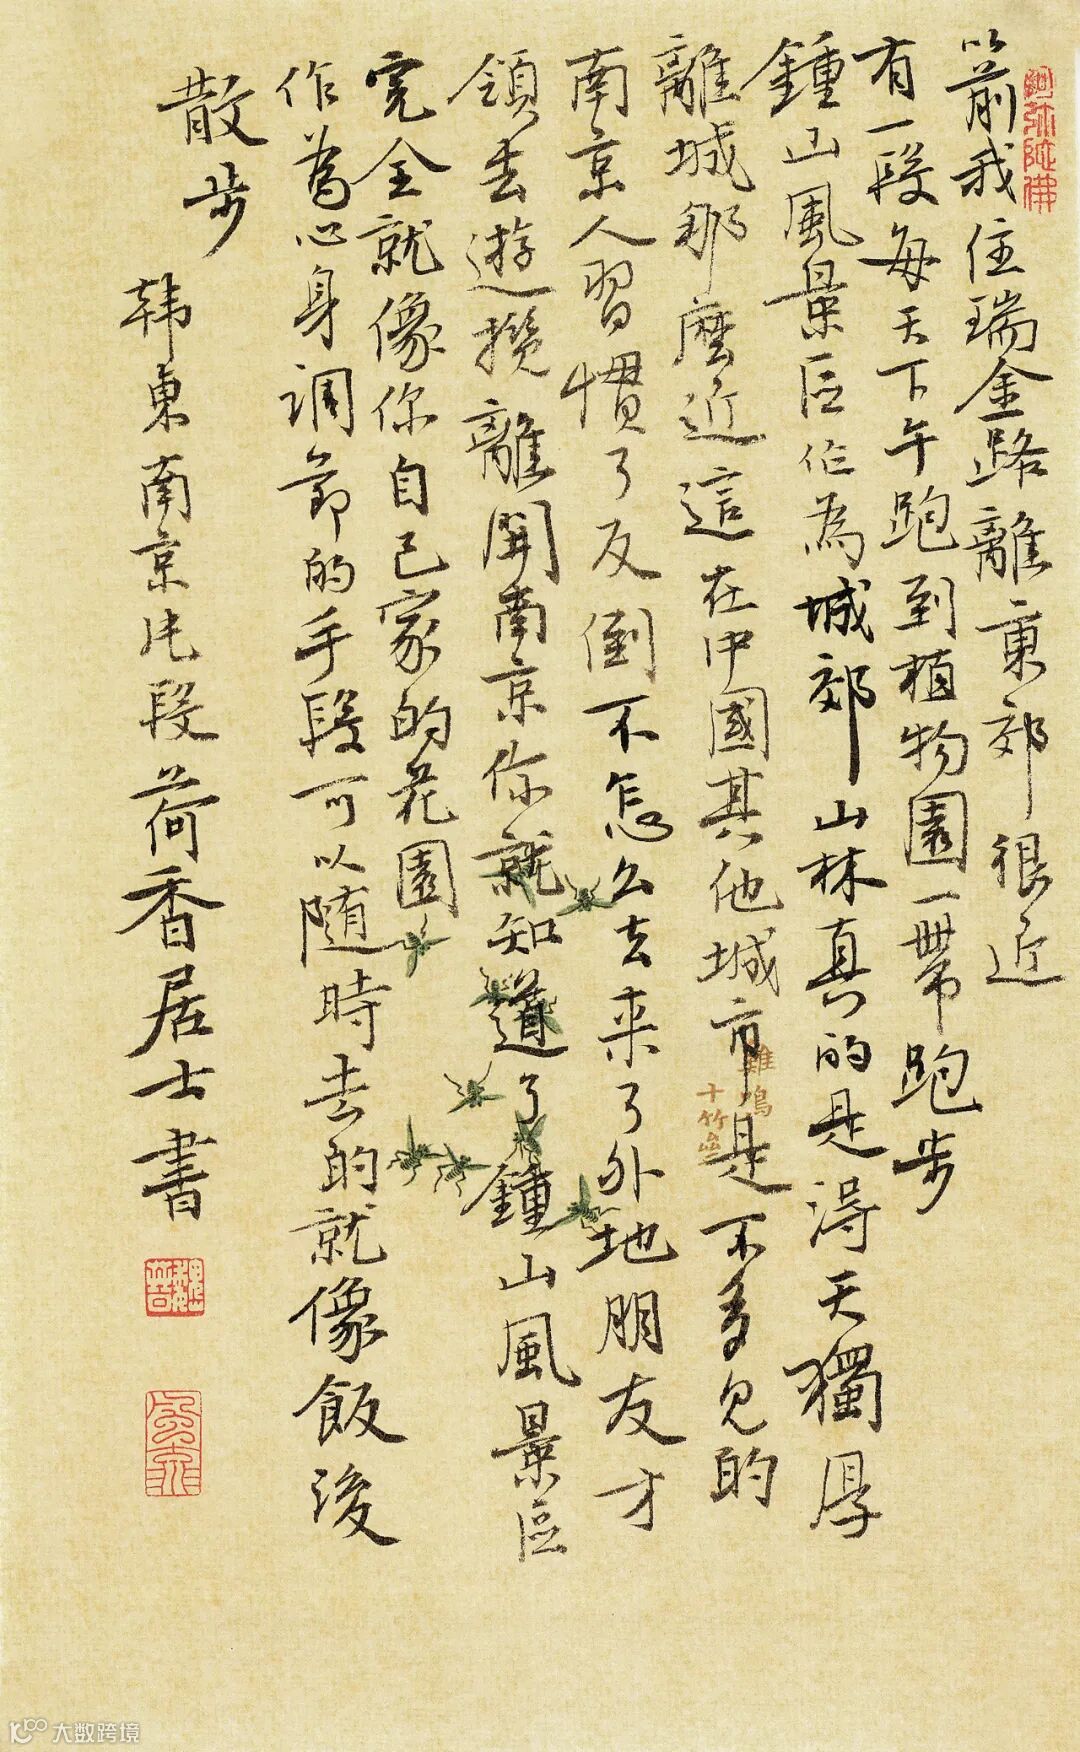 以前我住瑞金路離東郊很近
有一段每天下午跑到植物園一帶跑步
鍾山風景区作為城郊山林真的是得天獨厚
離城那麽近這在中國其他城市是不多見的
南京人習慣了反倒不怎么去来了外地朋友才
領去遊攬離開南京你就知道了鍾山風景區
完全就像你自己家的花園
作為心身调節的手段可以随時去的就像飯後
散步
韩東南京片段荷香居士書
阿弥陀佛
雞鳴
十竹齋
大数跨境